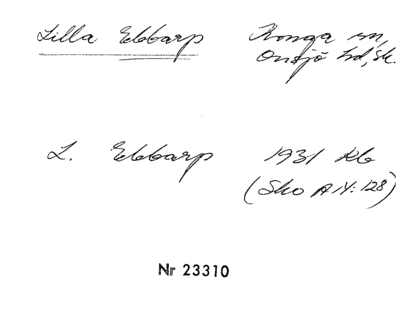 Lilla Ebbarp Konga sn,
Onsjö hd, Sk.
L. Ebbarp 1931 Kb
(Sko A IV: 128)
Nr 23310